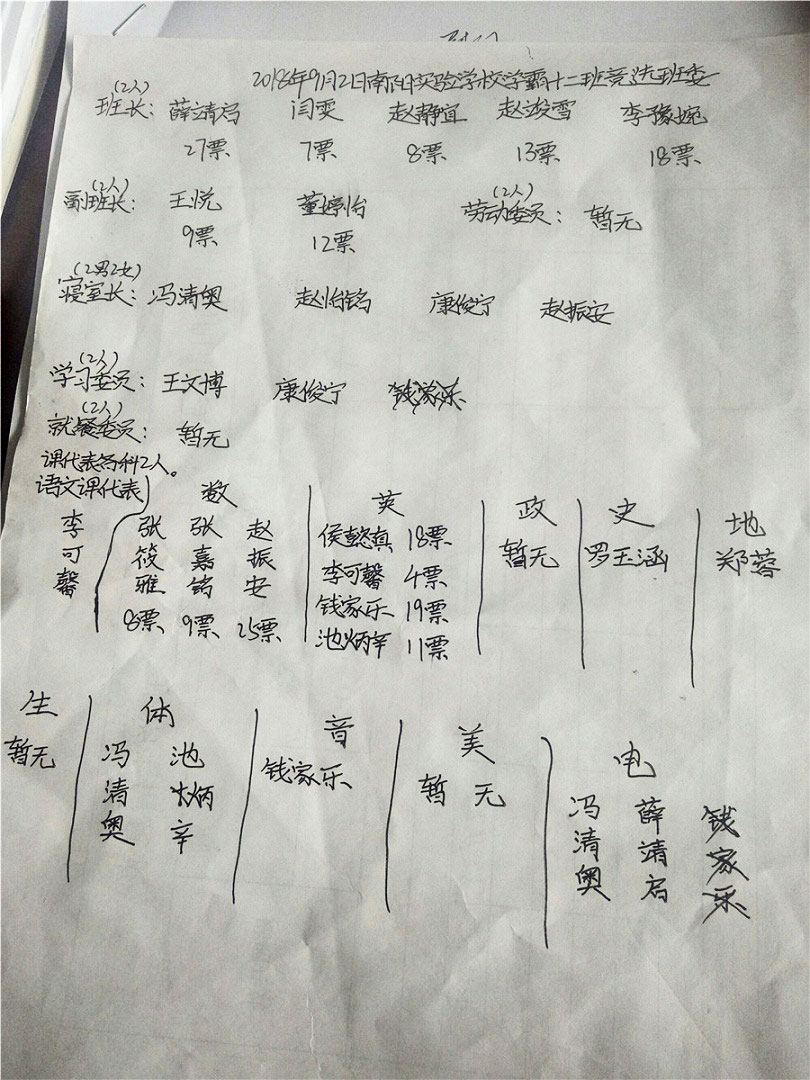 2018年9月2日南阳实验学校学霸十二班竞选班委
(2人)
班长：薛靖启 闫雯 赵静宜 赵梭雪 李豫婉
27票 7票 8票 13票 18票
(2人) (2人)
副班长：王悦 董婷怡 劳动委员：暂无
9票 12票
(2男2女)
寝室长：冯清奥 赵怡铭 康俊宁 赵振安
(2人)
学习委员：王文博 康俊宁 钱家乐
(2人)
就餐委员：暂无
课代表各科2人。
语文课代表 数 英 政 史 地
李可馨 张筱雅 张嘉铭 赵振安 侯懿真 18票 暂无 罗玉涵 郑蓉
李可馨 4票
8票 9票 25票 钱家乐 19票
池炳辛 11票
生 体 音 美 电
暂无 冯清奥 池炳辛 钱家乐 暂无 冯清奥 薛靖启 钱家乐